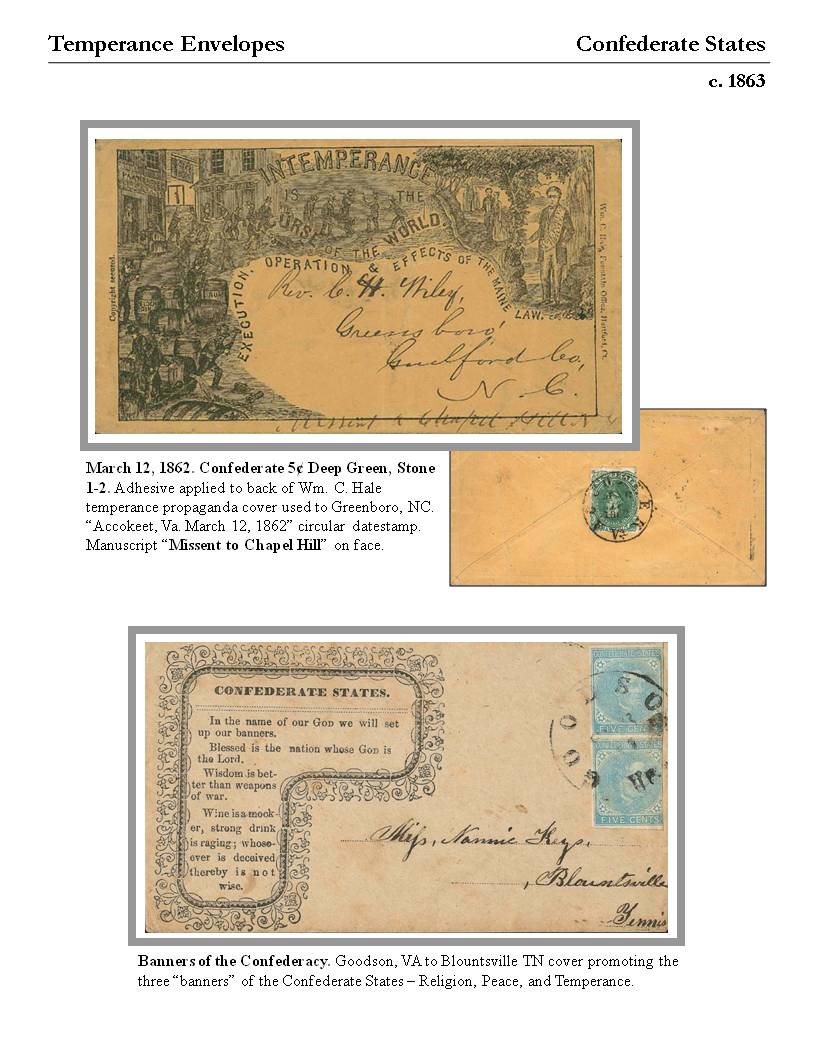 Temperance Envelopes
Confederate States
c. 1863
INTEMPERANCE
IS THE
CURSE OF THE WORLD.
EXECUTION, OPERATION & EFFECTS OF THE MAINE LAW.
Copyright secured.
Rev. C. H. Wiley,
Greensboro'
Guilford Co,
N. C.
Missent to Chapel Hill N
March 12, 1862. Confederate 5¢ Deep Green, Stone
1-2. Adhesive applied to back of Wm. C. Hale
temperance propaganda cover used to Greenboro, NC.
“Accokeet, Va. March 12, 1862” circular datestamp.
Manuscript “Missent to Chapel Hill” on face.
CONFEDERATE STATES.
In the name of our GOD we will set
up our banners.
Blessed is the nation whose GOD is
the Lord.
Wisdom is bet-
ter than weapons
of war.
Wine is a mock-
er, strong drink
is raging; whoso-
ever is deceived
thereby is not
wise.
CONFEDERATE STATES
FIVE CENTS
CONFEDERATE STATES
FIVE CENTS
GOODSON
Miss, Nannie Keys.
, Blountsville
Tennis
Banners of the Confederacy. Goodson, VA to Blountsville TN cover promoting the
three “banners” of the Confederate States – Religion, Peace, and Temperance.